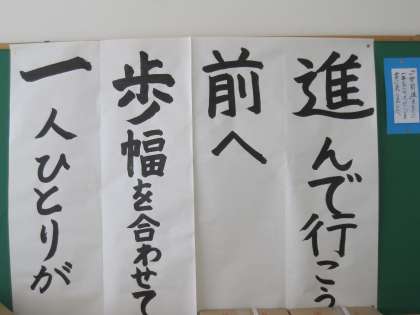 一人ひとりが
歩幅を合わせて
前へ
進んで行こう